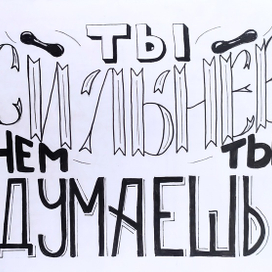 ТЫ
СИЛЬНЕЕ
ЧЕМ ТЫ
ДУМАЕШЬ